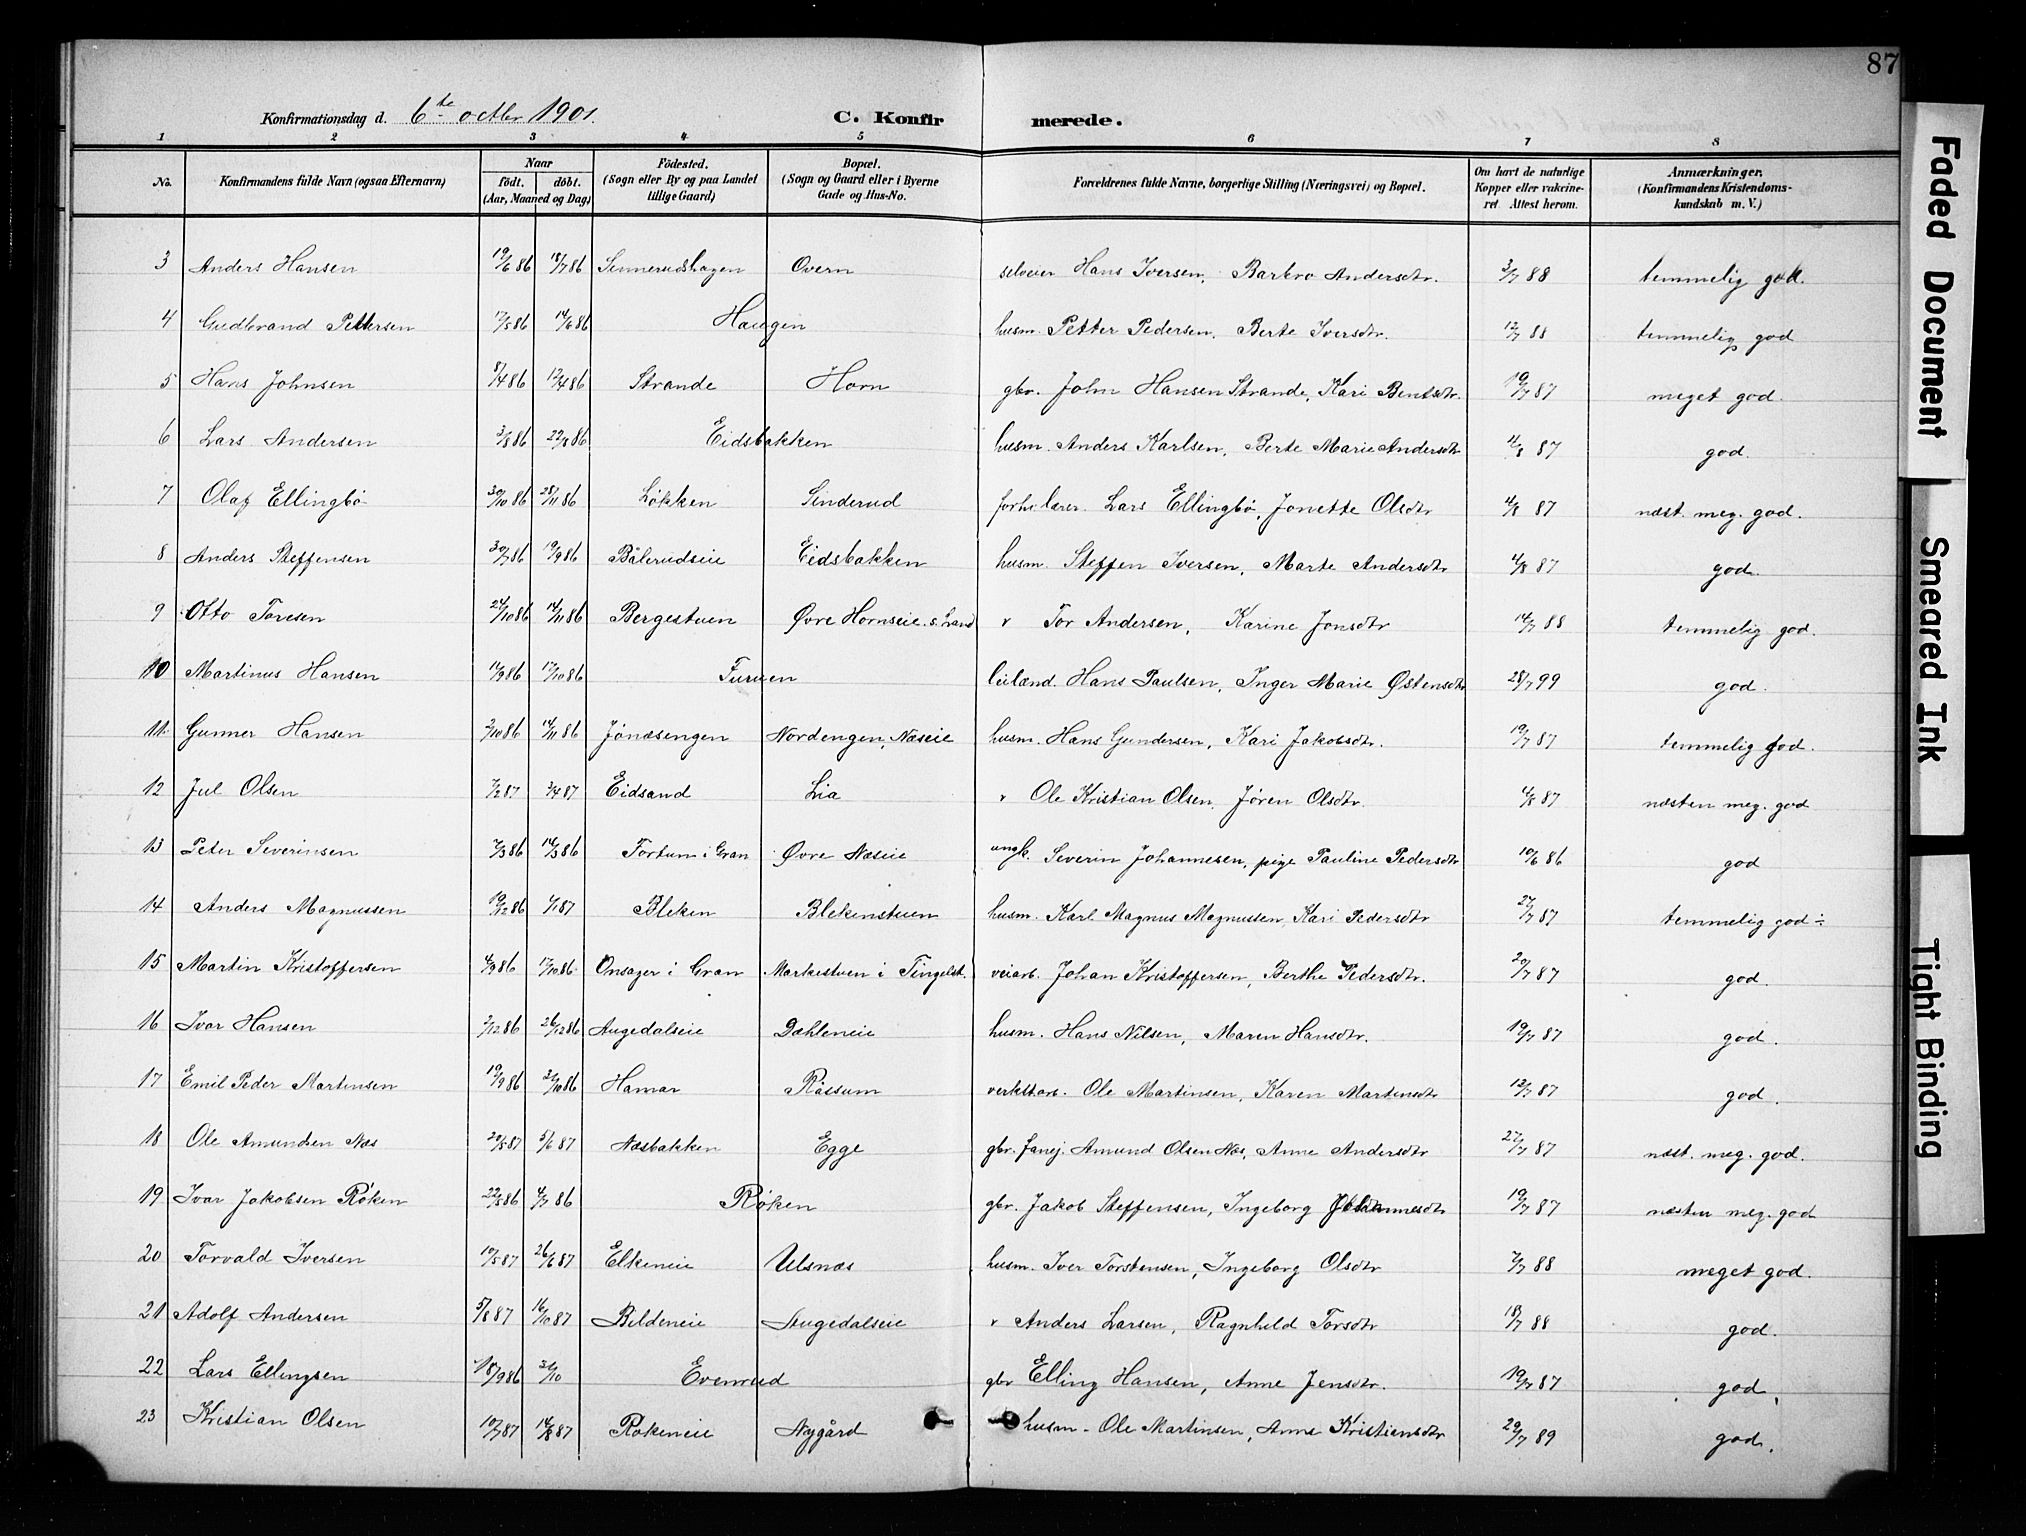 87
Konfirmationsdag d. 6te octbr 1901.
C. Konfirmerede.
1 2 3 4 5 6 7 8
No. Konfirmandens fulde Navn (ogsaa Efternavn) Naar födt. döbt. (Aar, Maaned og Dag) Födested. (Sogn eller By og paa Landet tillige Gaard) Bopæl. (Sogn og Gaard eller i Byerne Gade og Hus-No. Forældrenes fulde Navne, borgerlige Stilling (Næringsvei) og Bopæl. Om havt de naturlige Kopper eller vakcineret. Attest herom. Anmærkninger. (Konfirmandens Kristendomskundskab m. V.)
3 Anders Hansen 19/6 86 18/7 86 Sinnerudshagen Overn selveier Hans Iversen, Barbro Andersdtr. 3/7 88 temmelig god.
4 Gudbrand Pettersen 17/5 86 14/6 86 Haugen husm. Petter Pedersen, Berte Iversdtr. 12/7 88 temmelig god
5 Hans Johnsen 8/4 86 17/4 86 Strande Horn gbr. John Hansen Strande, Kari Bentsdtr. 19/7 87 meget god.
6 Lars Andersen 3/8 86 22/8 86 Eidsbakken husm. Anders Karlsen, Berte Marie Andersdtr 4/8 87 god.
7 Olaf Ellingbø 30/10 86 28/11 86 Løkken Sinderud forh. lærer. Lars Ellingbø, Jonette Olsdtr 4/8 87 næst. meg. god.
8 Anders Steffensen 30/7 86 19/9 86 Bålerudseie Eidsbakken husm. Steffen Iversen, Marte Andersdtr 4/8 87 god.
9 Otto Toresen 24/10 86 14/11 86 Bergestuen Øvre Hornseie. S. Land " Tor Andersen, Karine Jonsdtr 14/7 88 temmelig god.
10 Martinus Hansen 14/9 86 17/10 86 Furuen leilænd. Hans Paulsen, Inger Marie Østensdtr 28/7 99 god.
11. Gunner Hansen 2/10 86 14/11 86 Jønæsengen Nordengen, Næseie husm. Hans Gundersen, Kari Jakobsdtr. 19/7 87 temmelig god.
12 Jul Olsen 7/2 87 3/4 87 Eidsand Lia " Ole Kristian Olsen, Jøren Olsdtr. 4/8 87 næsten meg. god
13 Peter Severinsen 7/3 86 14/3 86 Tortum i Gran Øvre Næseie ungk. Severin Johannesen, pige Pauline Pedersdtr 10/6 86 god
14 Anders Magnussen 19/12 86 6/1 87 Bleken Blekenstuen husm. Karl Magnus Magnussen, Kari Pedersdtr 27/7 87 temmelig god ÷
15 Martin Kristoffersen 4/9 86 17/10 86 Onsager i Gran Markestuen i Tingelst. veiarb. Johan Kristoffersen, Berthe Pedersdtr. 20/7 87 god.
16 Ivar Hansen 2/12 86 26/12 86 Augedalseie Dæhleneie husm. Hans Nilsen, Maren Hansdtr. 19/7 87 god.
17 Emil Peder Martinsen 19/9 86 31/10 86 Hamar Råssum verkstarb. Ole Martinsen, Karen Martinsdtr 12/7 87 god.
18 Ole Amundsen Næs 20/5 87 5/6 87 Næsbakken Egge gbr. fanej. Amund Olsen Næs, Anne Andersdtr 27/7 87 næst. meg. god.
19 Ivar Jakobsen Røken 22/5 86 4/7 86 Røken gbr. Jakob Steffensen, Ingeborg Johannesdtr 19/7 87 næsten meg. god
20 Torvald Iversen 10/5 87 26/6 87 Elkeneie Ulsnæs husm. Iver Torstensen, Ingeborg Olsdtr 7/7 88 meget god.
21 Adolf Andersen 5/8 87 16/10 87 Bildeneie Augedalseie " Anders Larsen, Ragnhild Torsdtr 18/7 88 god.
22 Lars Ellingsen 18/9 86 31/10 Evenrud gbr Elling Hansen, Anne Jensdtr. 19/7 87 god.
23 Kristian Olsen 10/7 87 14/8 87 Rokeneie Nygård husm. Ole Martinsen, Anne Kristiansdtr 29/7 89 god.
Faded Document
Smeared Ink
Tight Binding